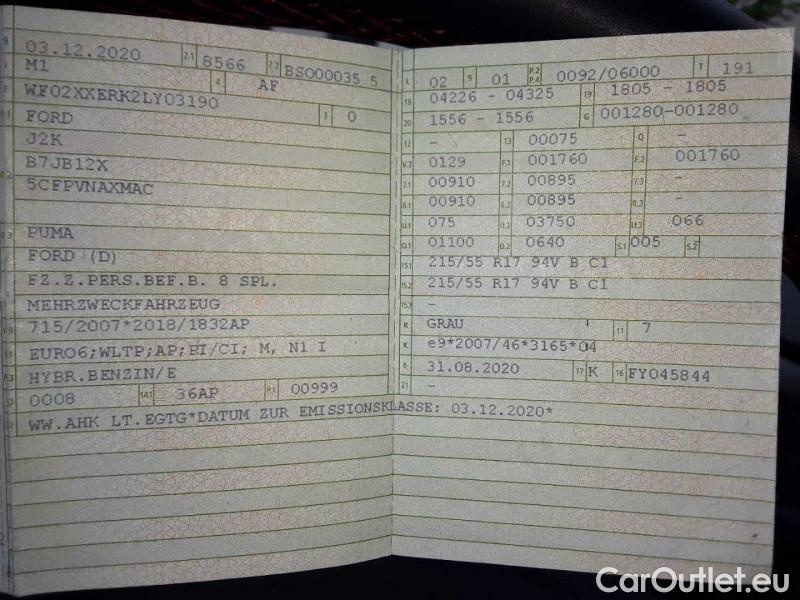 03.12.2020 2.1 8566 2.2 BSO00035 5
M1 4 AF
WF02XXERK2LY03190
FORD 3 0
J2K
B7JB12X
5CFPVNAXMAC
PUMA
FORD (D)
FZ.Z.PERS.BEF.B. 8 SPL.
MEHRZWECKFAHRZEUG
715/2007*2018/1832AP
EURO6;WLTP;AP;PI/CI; M, N1 I
HYBR.BENZIN/E
0008 14.1 36AP P.1 00999
WW.AHK LT.EGTG*DATUM ZUR EMISSIONSKLASSE: 03.12.2020*
L 02 9 01 P.2 P.4 0092/06000 T 191
18 04226 - 04325 19 1805 - 1805
20 1556 - 1556 G 001280-001280
12 - 13 00075 Q -
V.7 0129 F.1 001760 F.2 001760
7.1 00910 7.2 00895 7.3 -
8.1 00910 8.2 00895 8.3 -
U.1 075 U.2 03750 U.3 066
O.1 01100 O.2 0640 S.1 005 S.2 -
15.1 215/55 R17 94V B C1
15.2 215/55 R17 94V B C1
15.3 -
R GRAU 11 7
K e9*2007/46*3165*04
6 31.08.2020 17 K 16 FY045844
21 -
CarOutlet.eu